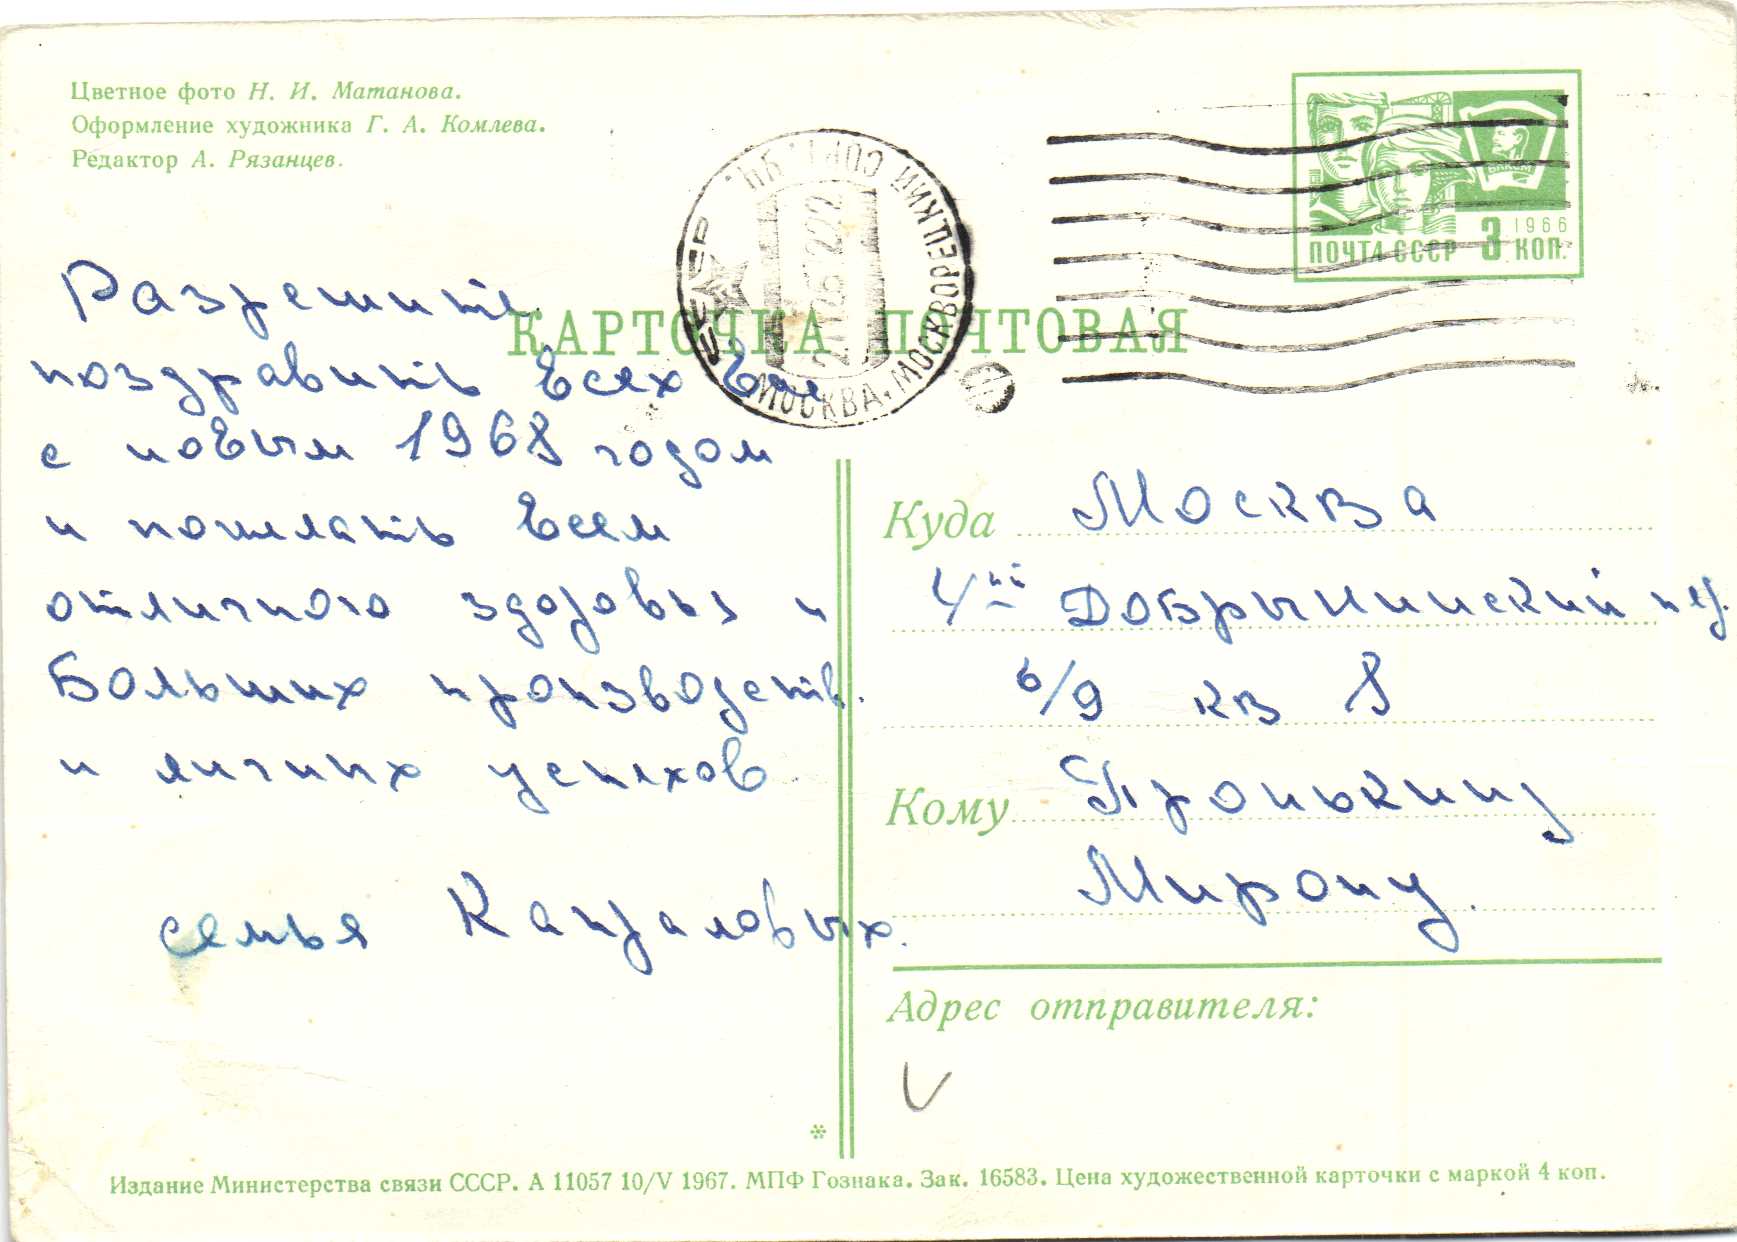 Цветное фото Н. И. Матанова.
Оформление художника Г. А. Комлева.
Редактор А. Рязанцев.
ПОЧТА СССР 3 КОП. 1966
ВЛКСМ
СССР МОСКВА. МОСКВОРЕЦКИЙ
КАРТОЧКА ПОЧТОВАЯ
Разрешите
поздравить Всех Вас
с новым 1968 годом
и пожелать Всем
отличного здоровья и
Больших производств.
и личных успехов
семья Капраловых.
Куда Москва
4ый Добрынинский пер.
6/9 кв 8
Кому Пронькину
Мирону.
Адрес отправителя:
Издание Министерства связи СССР. А 11057 10/V 1967. МПФ Гознака. Зак. 16583. Цена художественной карточки с маркой 4 коп.